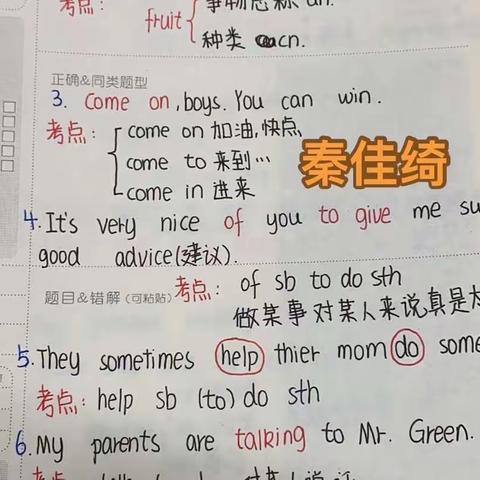 考点：
fruit
种类 cn.
正确&同类题型
3. Come on, boys. You can win.
考点：
come on 加油,快点
come to 来到…
come in 进来
秦佳绮
4. It's very nice of you to give me su
good advice(建议).
题目&错解（可粘贴）
考点： of sb to do sth
做某事 对某人来说真是太
5. They sometimes help thier mom do some
考点： help sb (to) do sth
6. My parents are talking to Mr. Green.